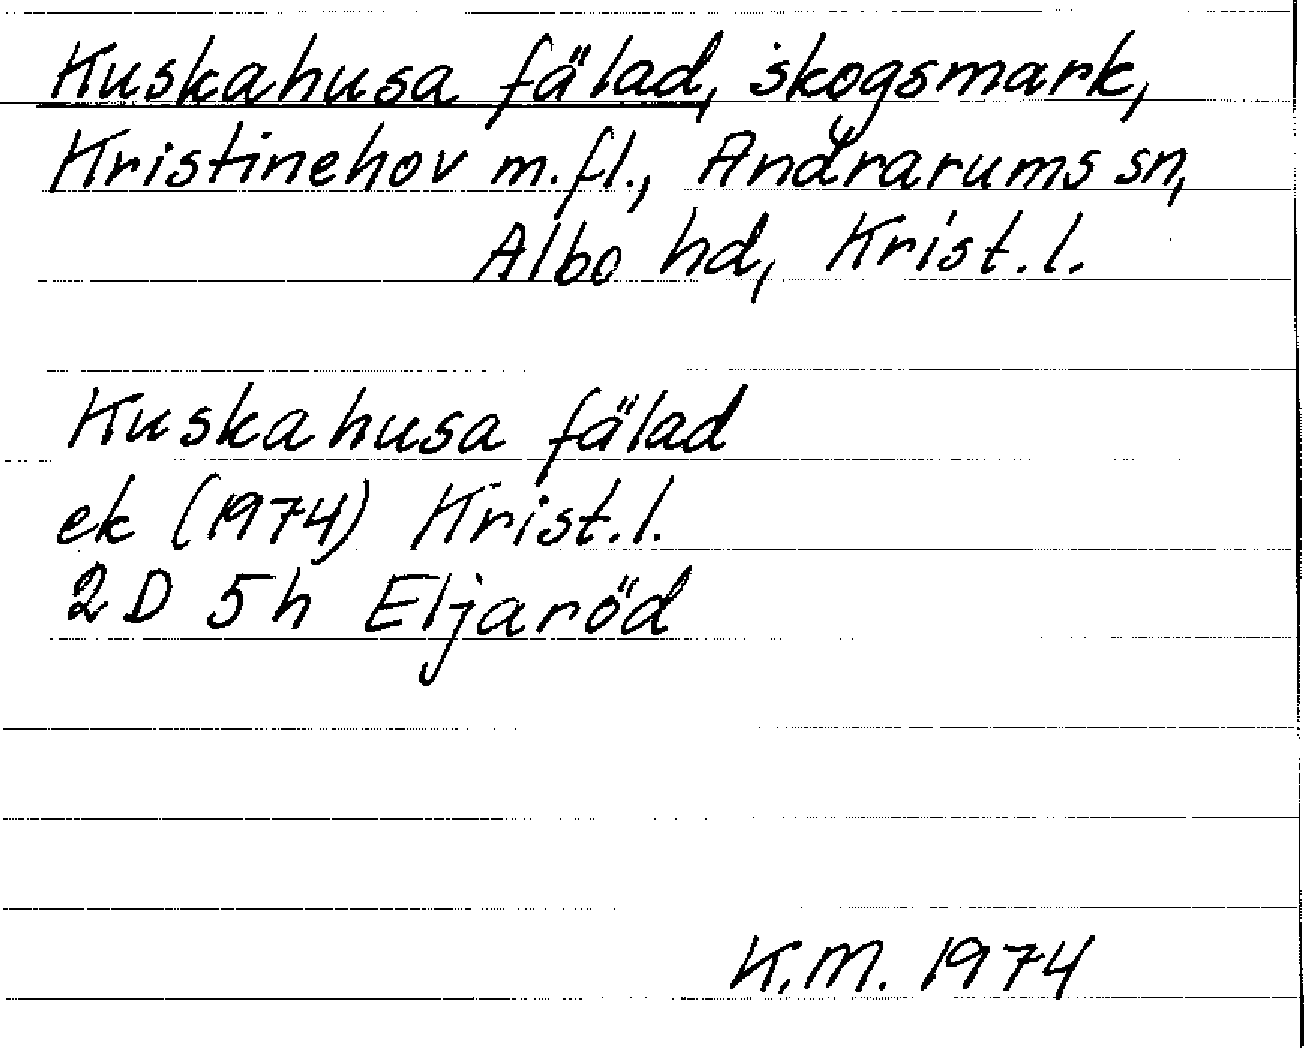 Kuskahusa fälad, skogsmark,
Kristinehov m.fl., Andrarums sn,
Albo hd, Krist.l.
Kuskahusa fälad
ek (1974) Krist.l.
2D 5h Eljaröd
K.M. 1974